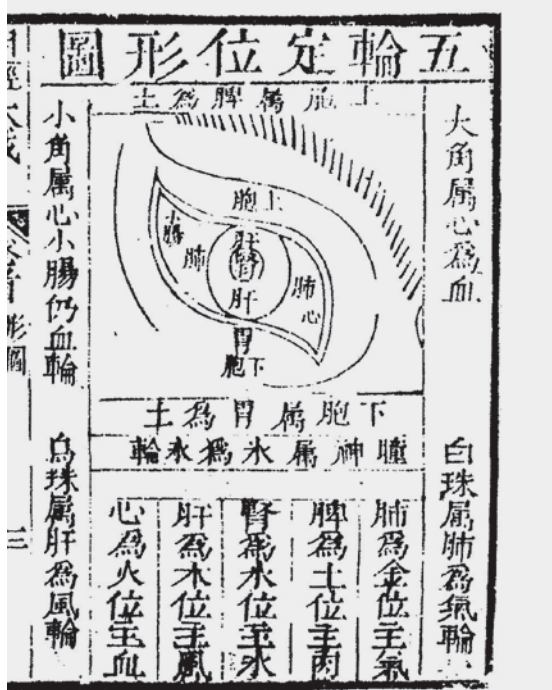 五輪定位形圖
大角属心為血
白珠属肺為氣輪
上胞属脾為土
上胞
肝
腎
肝
肺
心
肺
小腸
胃
下胞
下胞属胃為土
瞳神属水為水輪
肺為金位主氣
脾為土位主肉
腎為水位主水
肝為木位主風
心為火位主血
小角属心小腸仍血輪
烏珠属肝為風輪
經大成
形圖
三